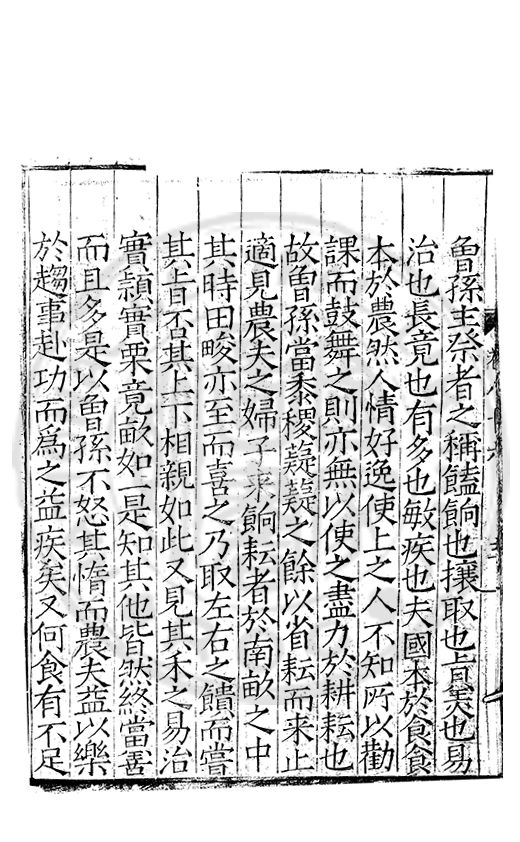 曾孫主祭者之稱饁餉也攘取也旨美也易
治也長竟也有多也敏疾也夫國本於食食
本於農然人情好逸使上之人不知所以勸
課而鼓舞之則亦無以使之盡力於耕耘也
故曾孫當黍稷薿薿之餘以省耘而来止
適見農夫之婦子来餉耘者於南畝之中
其時田畯亦至而喜之乃取左右之饋而嘗
其旨否其上下相親如此又見其禾之易治
實穎實栗竟畝如一是知其他皆然終當善
而且多是以曾孫不怒其惰而農夫益以樂
於趨事赴功而為之益疾矣又何食有不足